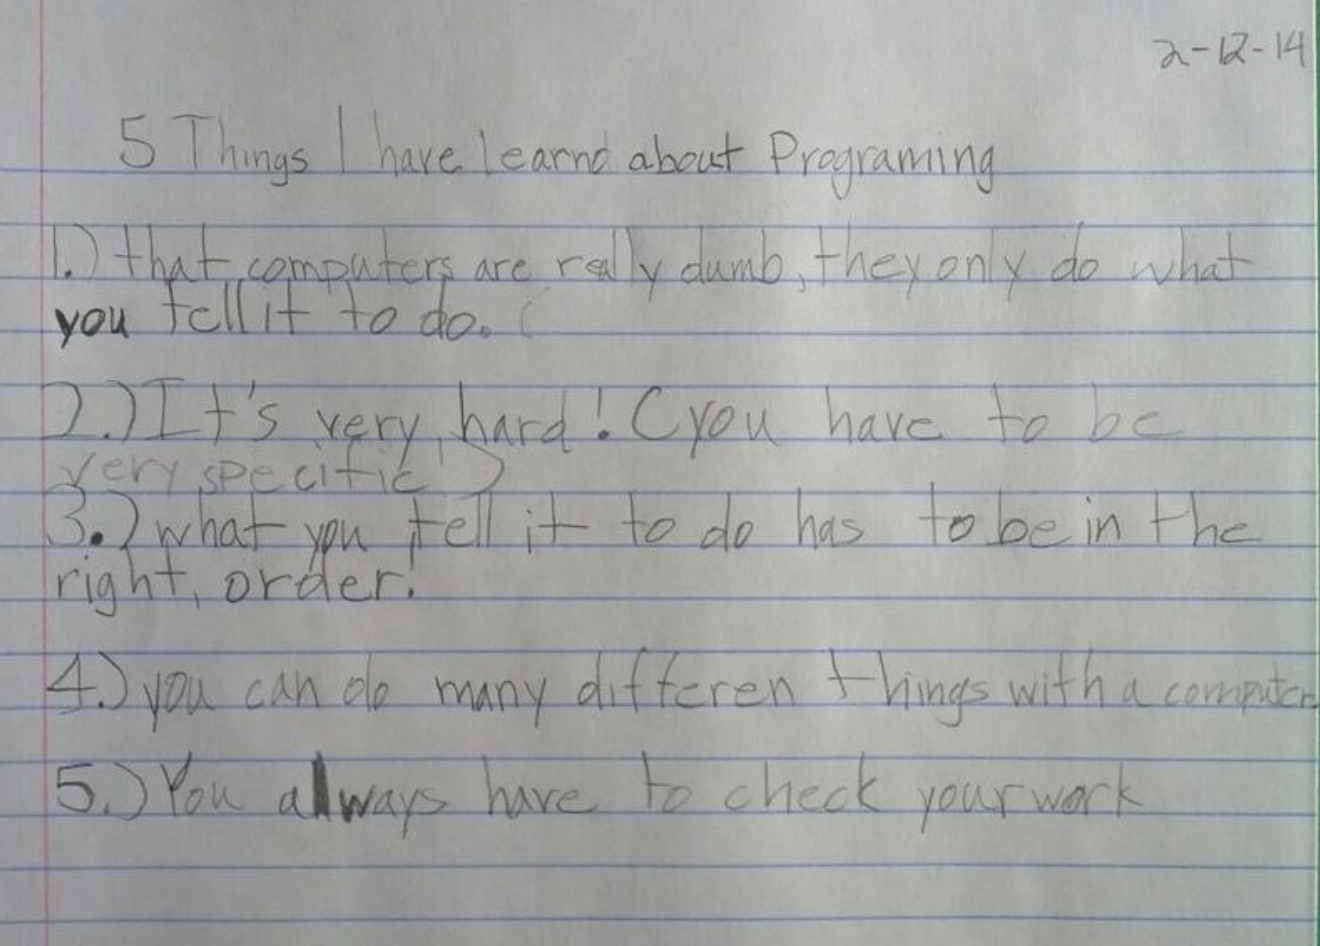 2-12-14
5 Things I have learnd about Programing
1.) that computers are really dumb, they only do what
you tell it to do. (
2.) It's very hard! (you have to be
very specific!)
3.) what you tell it to do has to be in the
right, order!
4.) you can do many differen things with a computer
5.) You always have to check your work